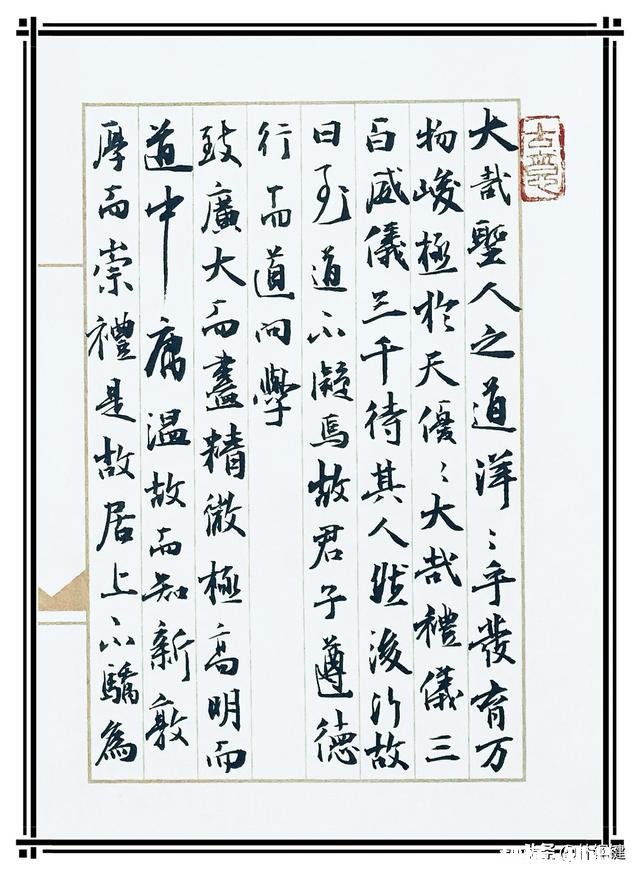 大哉聖人之道洋〻乎發育万
物峻極於天優〻大哉禮儀三
百威儀三千待其人然後行故
曰至道不凝焉故君子遵德
行而道问學
致廣大而盡精微極高明而
道中庸温故而知新敦
厚而崇禮是故居上不驕為